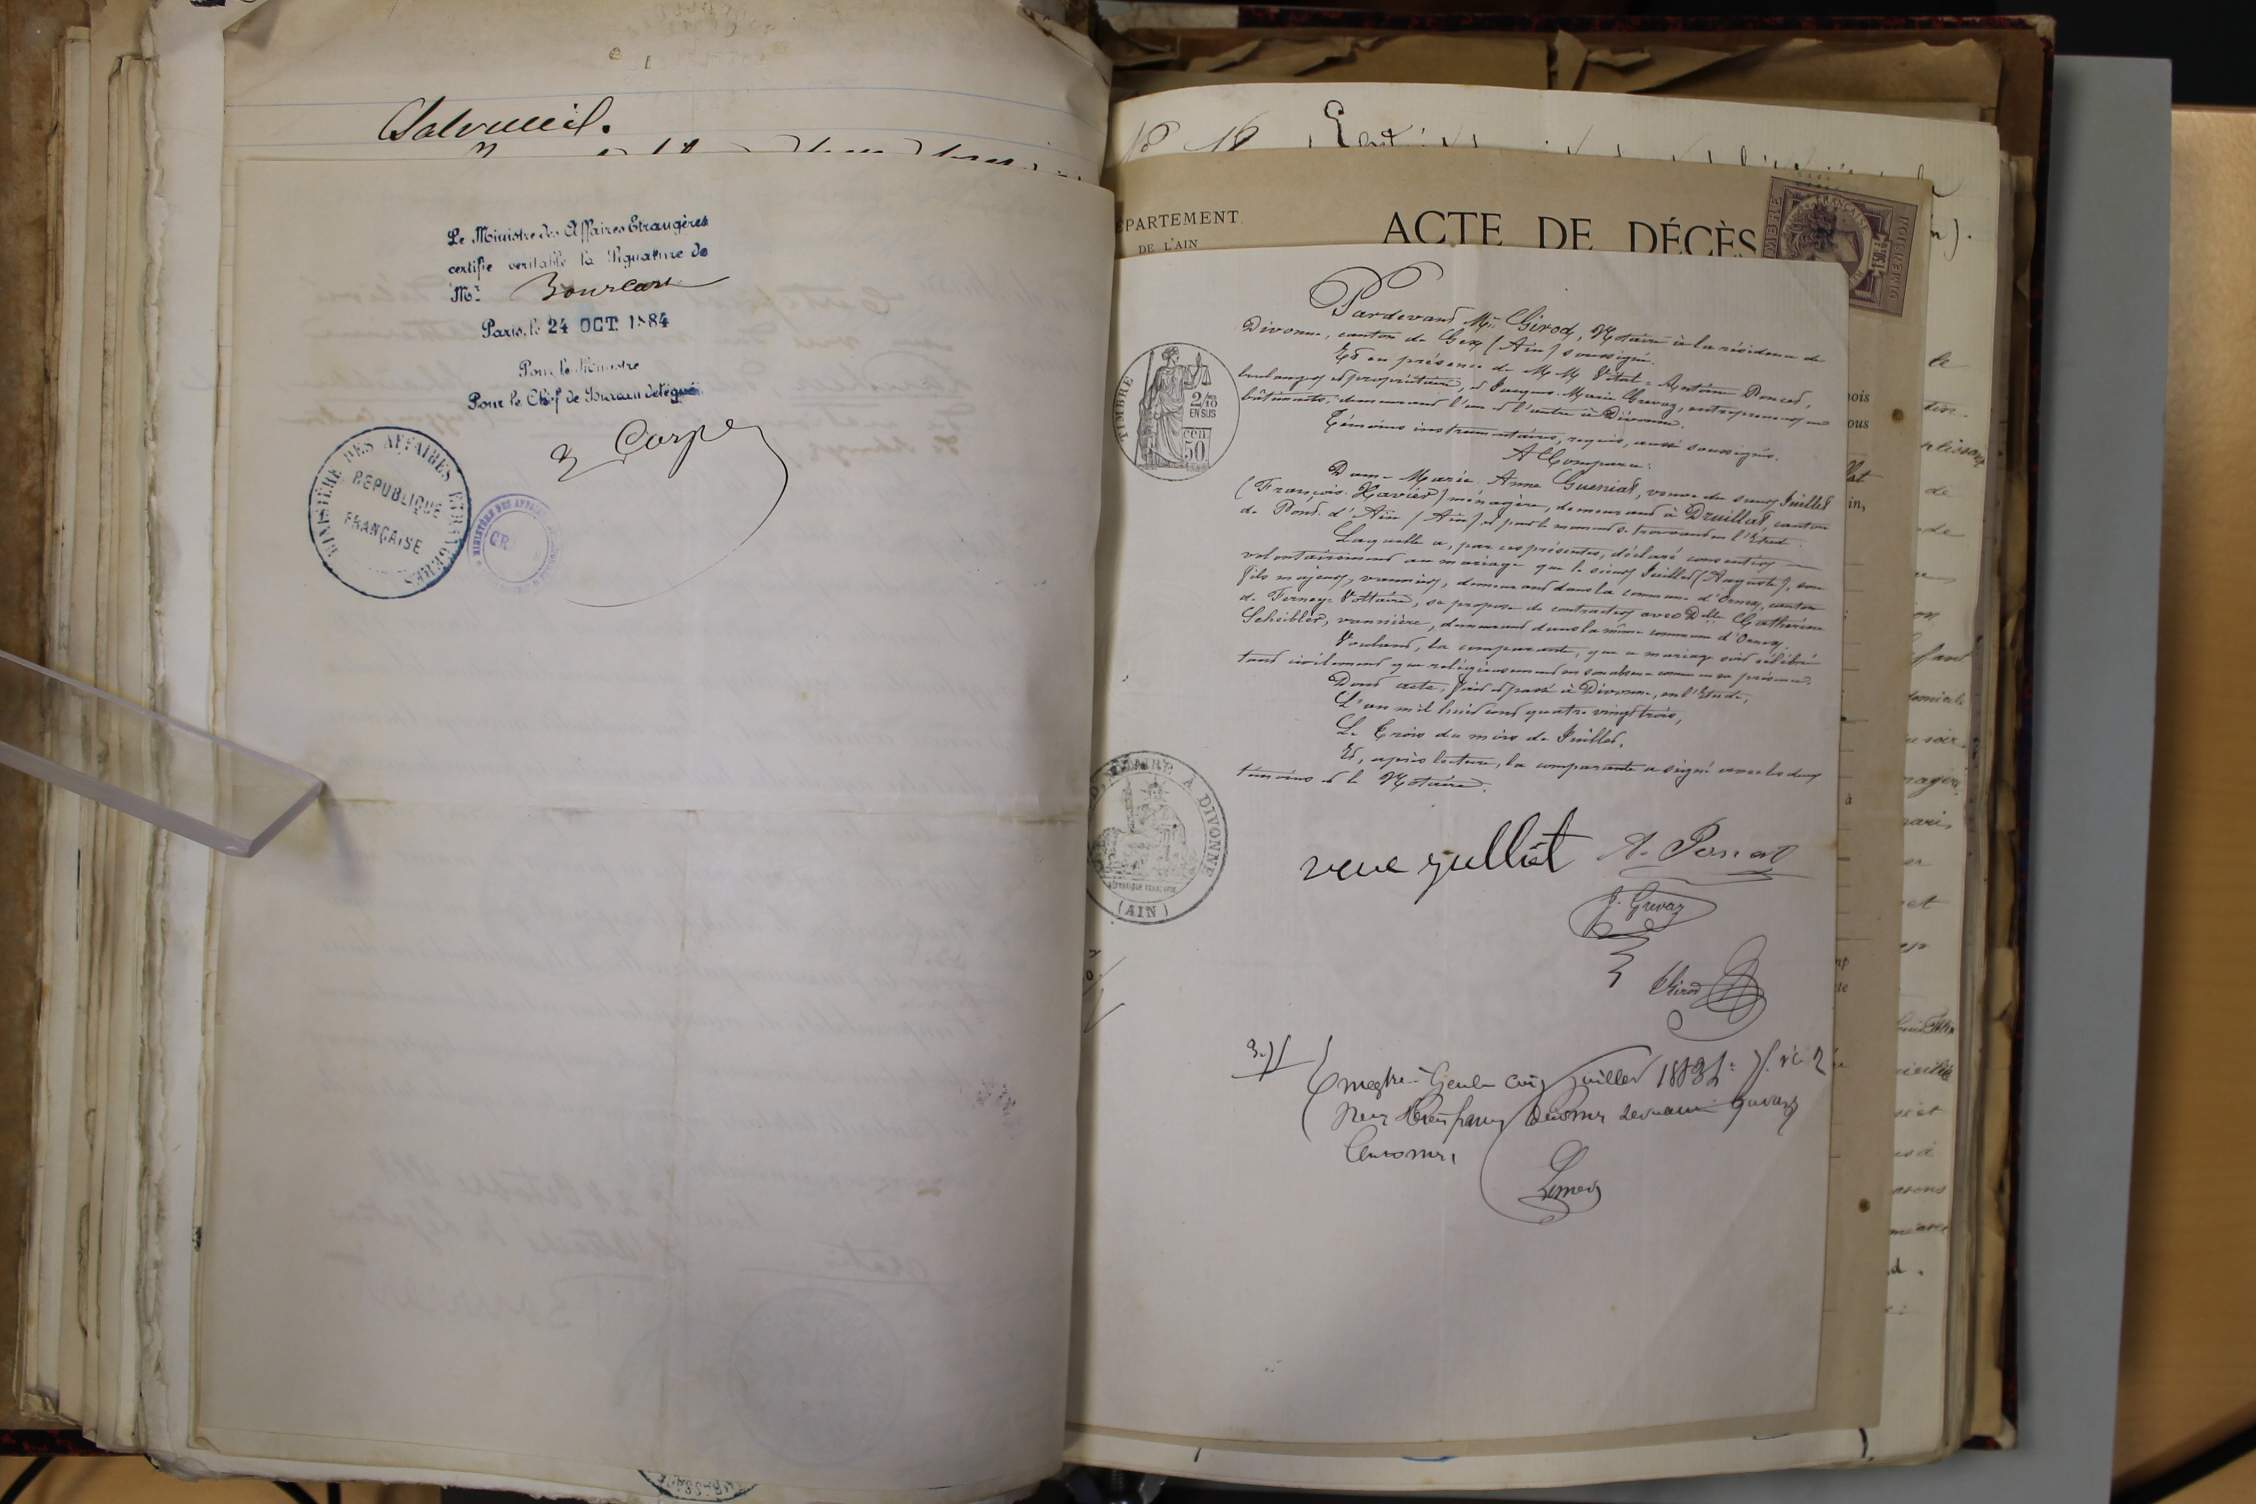 Salvrueil.
Le Ministre des Affaires Etrangères
certifie veritable la Signature de
Mr. Bourcart
Paris, le 24 OCT. 1884
Pour le Ministre
Pour le Chef de Bureau délégué
MINISTÈRE DES AFFAIRES ETRANGÈRES
REPUBLIQUE
FRANÇAISE
No 16
DÉPARTEMENT
DE L'AIN
ACTE DE DÉCÈS
TIMBRE
DIMENSION
TIMBRE
2/10
EN SUS
50 cen
Pardevant Me. Girod, Notaire à la résidence de
Divonne, canton de Gex (Ain) soussigné.
Et en présence de MM Vital-Antoine Poncet,
boulanger et propriétaire, et Jacques Marie Grevaz, entrepreneur en
bâtiments, demeurant l'un et l'autre à Divonne.
Témoins instrumentaires, requis, aussi soussignés.
A Comparu:
Dame Marie Anne Gueniat, veuve du sieur Juillet
(François-Xavier) ménagère, demeurant à Druillat, canton
de Pont-d'Ain (Ain) et pour le moment se trouvant en l'Etude.
Laquelle a, par ces présentes, déclaré consentir
volontairement au mariage que le sieur Juillet (Auguste), son
fils majeur, vannier, demeurant dans la commune d'Ornex, canton
de Ferney-Voltaire, se propose de contracter avec Dlle Catherine
Scheibler, vannière, demeurant dans la même commune d'Ornex.
Voulant, la comparante, que ce mariage soit célébré
tant civilement que religieusement en son absence comme en sa présence.
Dont acte, fait et passé à Divonne, en l'Etude,
L'an mil huit cent quatre vingt trois,
Le Trois du mois de Juillet.
Et, après lecture, la comparante a signé avec les deux
témoins et le Notaire.
NOTAIRE A DIVONNE
RÉPUBLIQUE FRANÇAISE
(AIN)
veve jullièt A. Poncet
J. Grevaz
Girod
juillet 1883